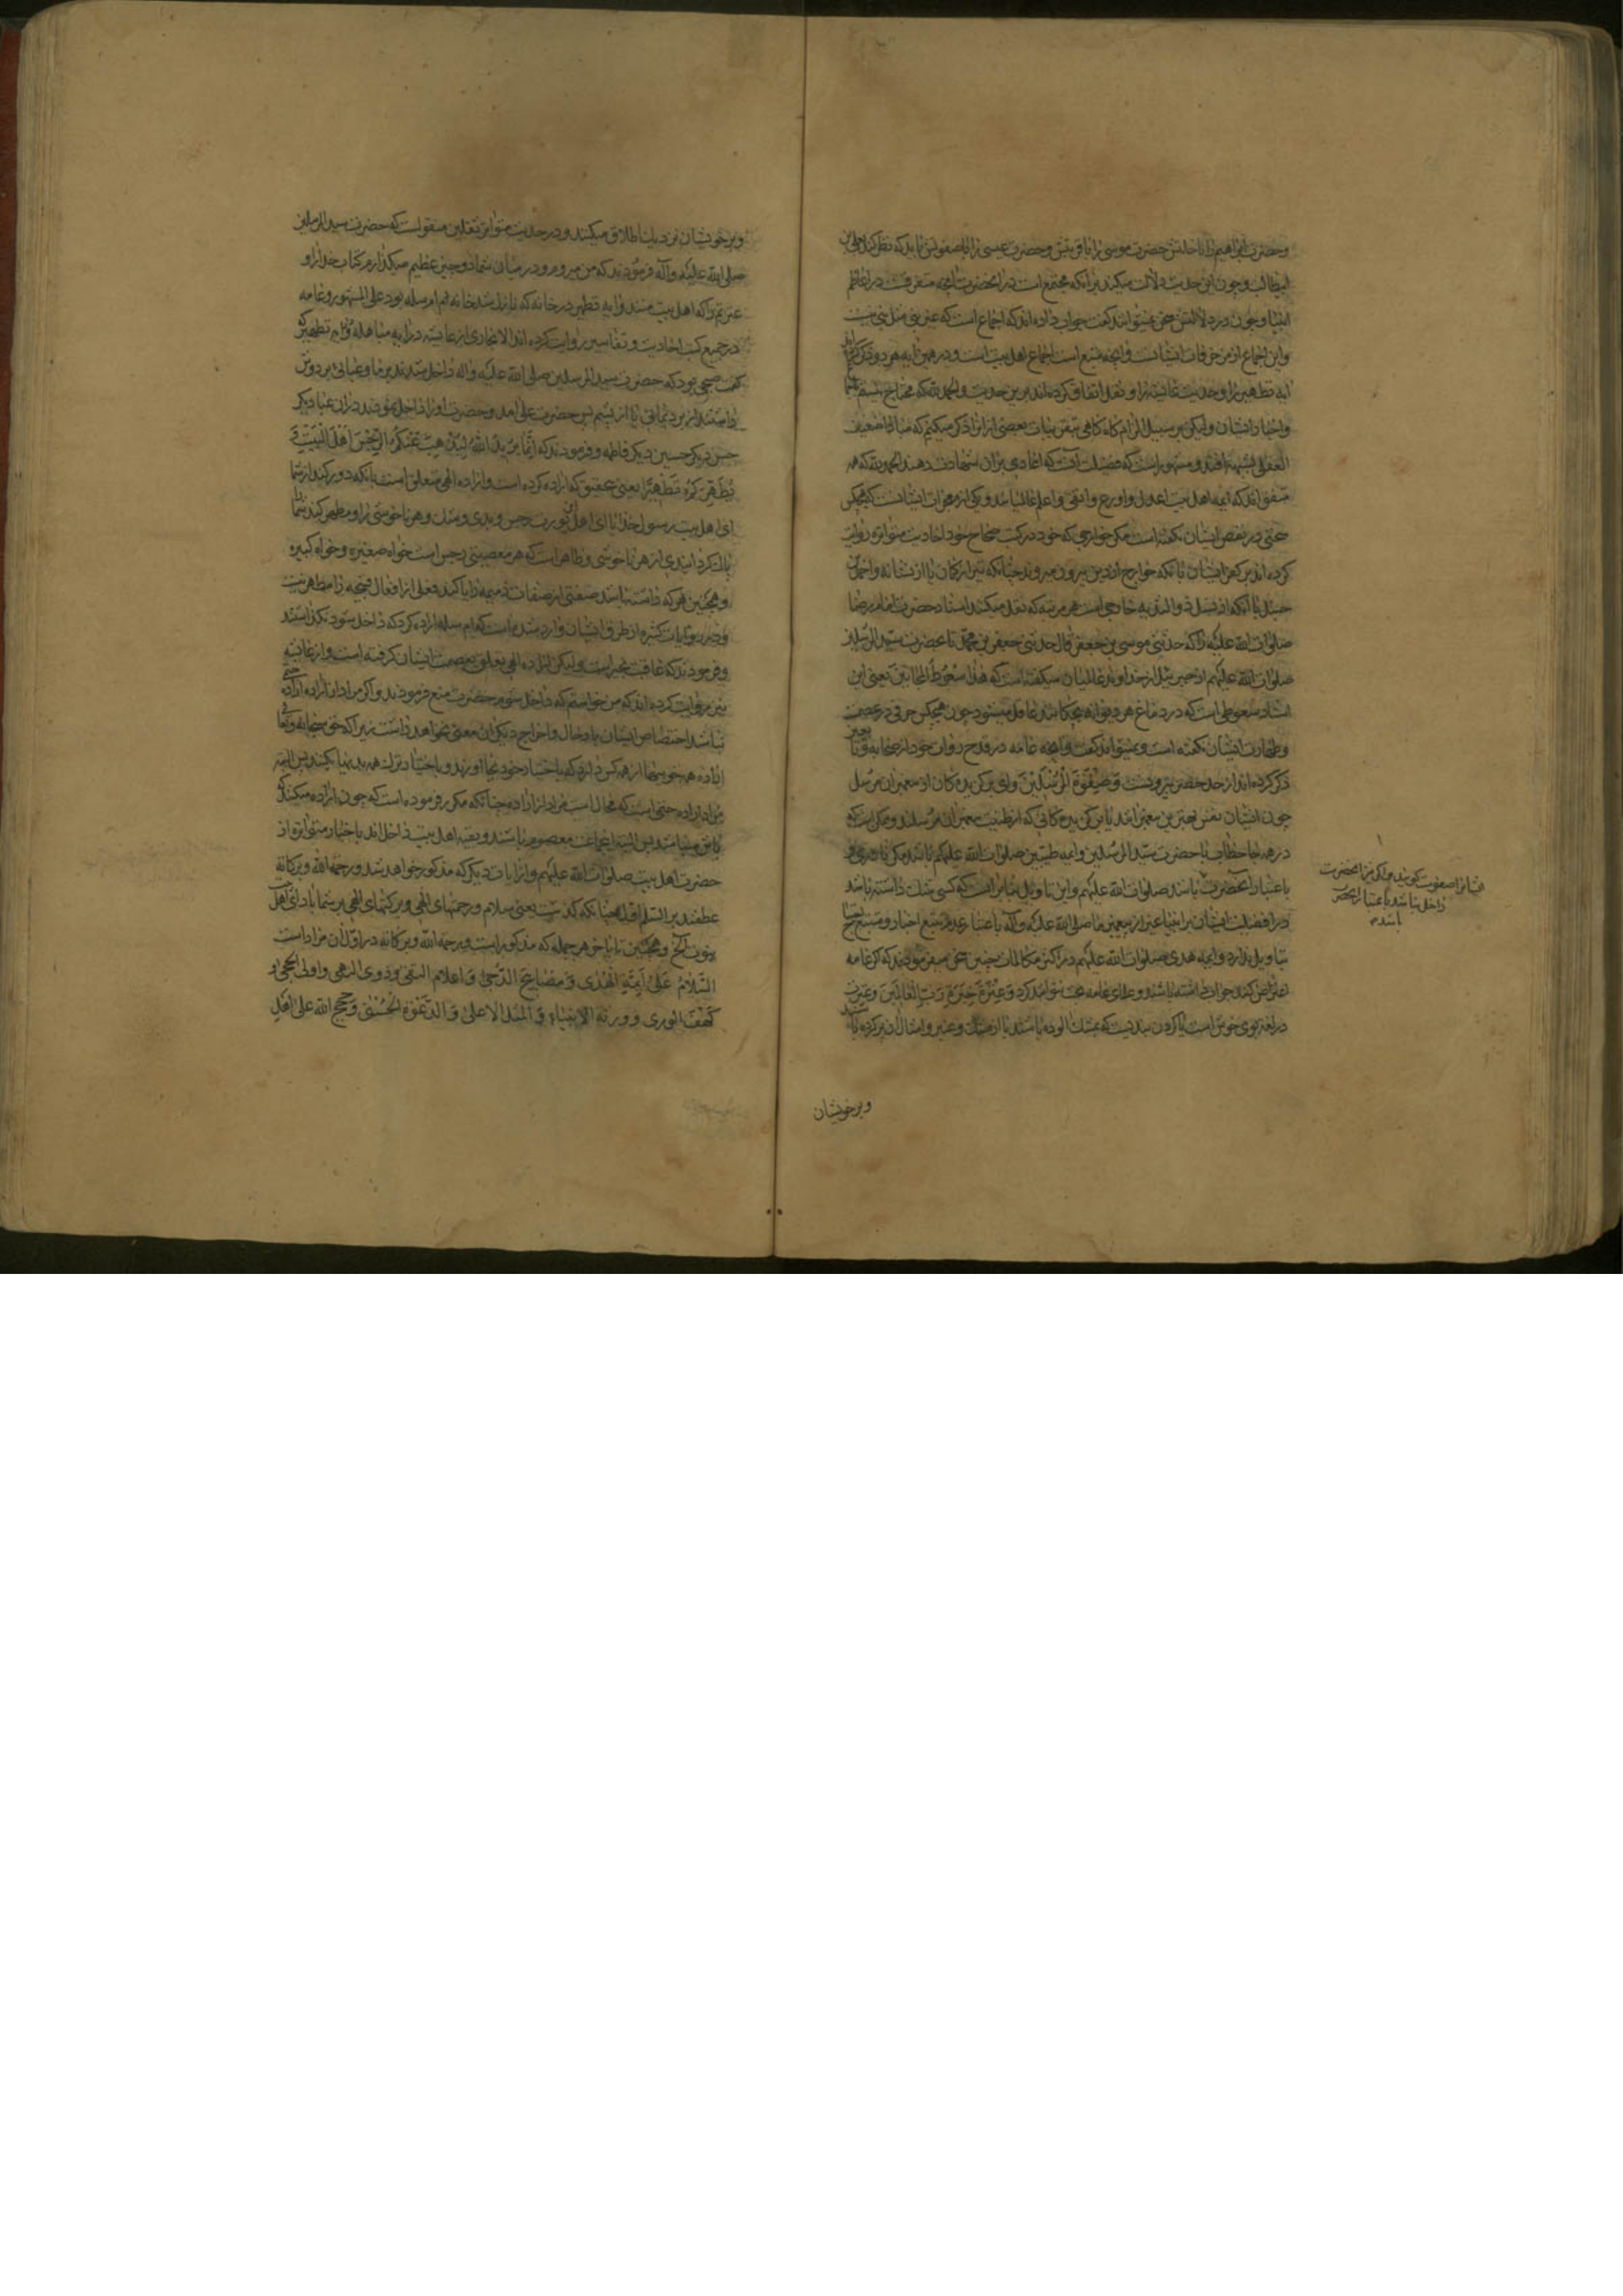 وحضرت ابراهیم را با خلتش حضرت موسی را با قربتش وحضرت عیسی را با صفوتش باید که نظر کند بعلی بن
ابیطالب وچون این حدیث دلالت میکند بر آنکه مجتمع است در آنحضرت آنچه متفرقست در اعاظم
انبیا وچون در دلالتش سخن نمیتوانند گفت جواب داده‌اند که اجماع است که غیر نبی مثل نبی نیست
واین اجماع از مزخرفات ایشانست وآنچه متبع است اجماع اهل بیت است ودر همین آیه هر دو ذکر کرده‌اند
آیه تطهیر را وحدیث عایشه را ونقل اتفاق کرده‌اند برین حدیث والحمد لله که محتاج نیستیم
واخبار ایشان ولیکن بر سبیل الزام گاه گاهی بتقریبات بعضی از انرا ذکر میکنیم که مبادا ضعیف
العقولی بشبهه افتد ومشهور است که فضیلت آنست که اعادی بران شهادت دهند الحمد لله که همه
متفق‌اند که ایمه اهل بیت اعدل واورع واتقی واعلم عالمیانند ویکی از معجزات ایشانست که هیچکس
سخنی در نقص ایشان نگفته است مگر خوارجی که خود در کتب صحاح خود احادیث متواتره روایت
کرده‌اند بر کفر ایشان بانکه خوارج از دین بیرون میروند چنانکه تیر از کمان یا از نشانه واحمد بن
حنبل با آنکه از نسل ذو الثدیه خارجی است هر مرتبه که نقل میکند اسناد حضرت امام رضا
صلوات الله علیه را که حدثنی موسی بن جعفر قال حدثنی جعفر بن محمد تا بحضرت سید المرسلین
صلوات الله علیهم از جبرئیل از خداوند عالمیان میگفته است که هذا سعوط المجانین یعنی این
اسناد سعوطی است که در دماغ هر دیوانه بچکانند عاقل میشود چون هیچکس حرفی در عصمت
وطهارت ایشان نگفته است ونمیتوانند گفت وآنچه عامه در قدح روات خود از صحابه وتابعین
ذکر کرده‌اند از حد حصر بیرونست وَصَفْوَةَ الْمُرْسَلِینَ وای برگزیدگان از پیغمبران مرسل
چون ایشان نفس بهترین پیغمبرانند یا برگزیدگانی که از طینت پیغمبران مرسلند وممکن است که
در همه جا خطاب با حضرت سید المرسلین وایمه طیبین صلوات الله علیهم باشد
باعتبار آنحضرت باشد صلوات الله علیهم واین تاویل بنابر آنست که کسی شک داشته باشد
در افضلیت ایشان بر انبیا غیر از پیغمبر ما صلی الله علیه وآله باعتبار عدم تتبع اخبار ومتتبع
تاویل ندارد وایمه هدی صلوات الله علیهم در اکثر مکالمات چنین سخن میفرمودند که اگر عامه
اعتراض کنند جواب داشته باشند وعلمای عامه بحث نتوانند کرد وَعِتْرَةَ خِیَرَةِ رَبِّ الْعالَمِینَ وعترت
در لغة بوی خوش است یا گردن بندیست که بمشک آلوده باشند یا از مشک وعنبر وامثال آن پر کرده باشند
وبر خویشان
ایشانرا صفوت گویند
داخل باشد یا باعتبار آنحضرت
باشد
وبر خویشان نزدیک اطلاق میکنند ودر حدیث متواتر ثقلین منقولست که حضرت سید المرسلین
صلی الله علیه وآله فرمودند که من میروم ودر میان شما دو چیز عظیم میگذارم کتاب خدا را و
عترتم را که اهل بیت منند وآیه تطهیر در خانه که نازل شد خانه ام سلمه بود علی المشهور وعامه
در جمیع کتب احادیث وتفاسیر روایت کرده‌اند الا بخاری از عایشه در آیه مباهله وآیه تطهیر که
گفت صبحی بود که حضرت سید المرسلین صلی الله علیه وآله داخل شدند بر ما وعبائی بر دوش
داشتند از برد یمانی یا از پشم پس حضرت علی آمد وحضرت او را داخل نمودند در آن عبا دیگر
حسن دیگر حسین دیگر فاطمه وفرمودند که اِنَّما یُرِیدُ اللهُ لِیُذْهِبَ عَنْکُمُ الرِّجْسَ اَهْلَ الْبَیْتِ وَ
یُطَهِّرَکُمْ تَطْهِیرًا یعنی بتحقیق که اراده کرده است واراده الهی متعلق است بانکه دور کند از شما
ای اهل بیت رسول خدا یا ای اهل این بیت رجس وبدی وشک وهر ناخوشی را ومطهر کند شما
پاک گردانیدنی از هر ناخوشی وظاهر است که هر معصیتی رجس است خواه صغیره وخواه کبیره
وهمچنین هر که داشته باشد صفتی از صفات ذمیمه را یا کند فعلی از افعال قبیحه را مطهر نیست
ودر روایات کثیره از طرق ایشان وارد شده است که ام سلمه اراده کرد که داخل شود نگذاشتند
وفرمودند که عاقبتت بخیر است ولیکن اراده الهی تعلق بعصمت ایشان گرفته است واز عایشه
نیز روایت کرده‌اند که من خواستم که داخل شوم حضرت منع فرمودند واگر مراد از اراده اراده حتمی
نباشد اختصاص ایشان بادخال واخراج دیگران معنی نخواهد داشت زیرا که حق سبحانه وتعالی
اراده همه خوبیها از همه کس دارد که باختیار خود بجا آورند وباختیار ترک همه بدیها بکنند پس البته
مراد اراده حتمی است که محال است مراد از اراده چنانکه مکرر فرموده است که چون اراده میکند
حضرت اهل بیت صلوات الله علیهم واز آیات دیگر که مذکور خواهد شد ورحمة الله وبرکاته
عطفند بر السلام اول چنانکه گذشت یعنی سلام ورحمتهای الهی وبرکتهای الهی بر شما باد ای اهل
بیت وهمچنین تا باخر هر جمله که مذکور است ورحمة الله وبرکاته در اول آن مراد است
السَّلامُ عَلی اَیِمَّةِ الْهُدی وَ مَصابِیحِ الدُّجی وَ اَعْلامِ التُّقی وَ ذَوِی النُّهی وَ اُولِی الْحِجی وَ
کَهْفِ الْوَری وَ وَرَثَةِ الْاَنْبِیاءِ وَ الْمَثَلِ الْاَعْلی وَ الدَّعْوَةِ الْحُسْنی وَ حُجَجِ اللهِ عَلی اَهْلِ